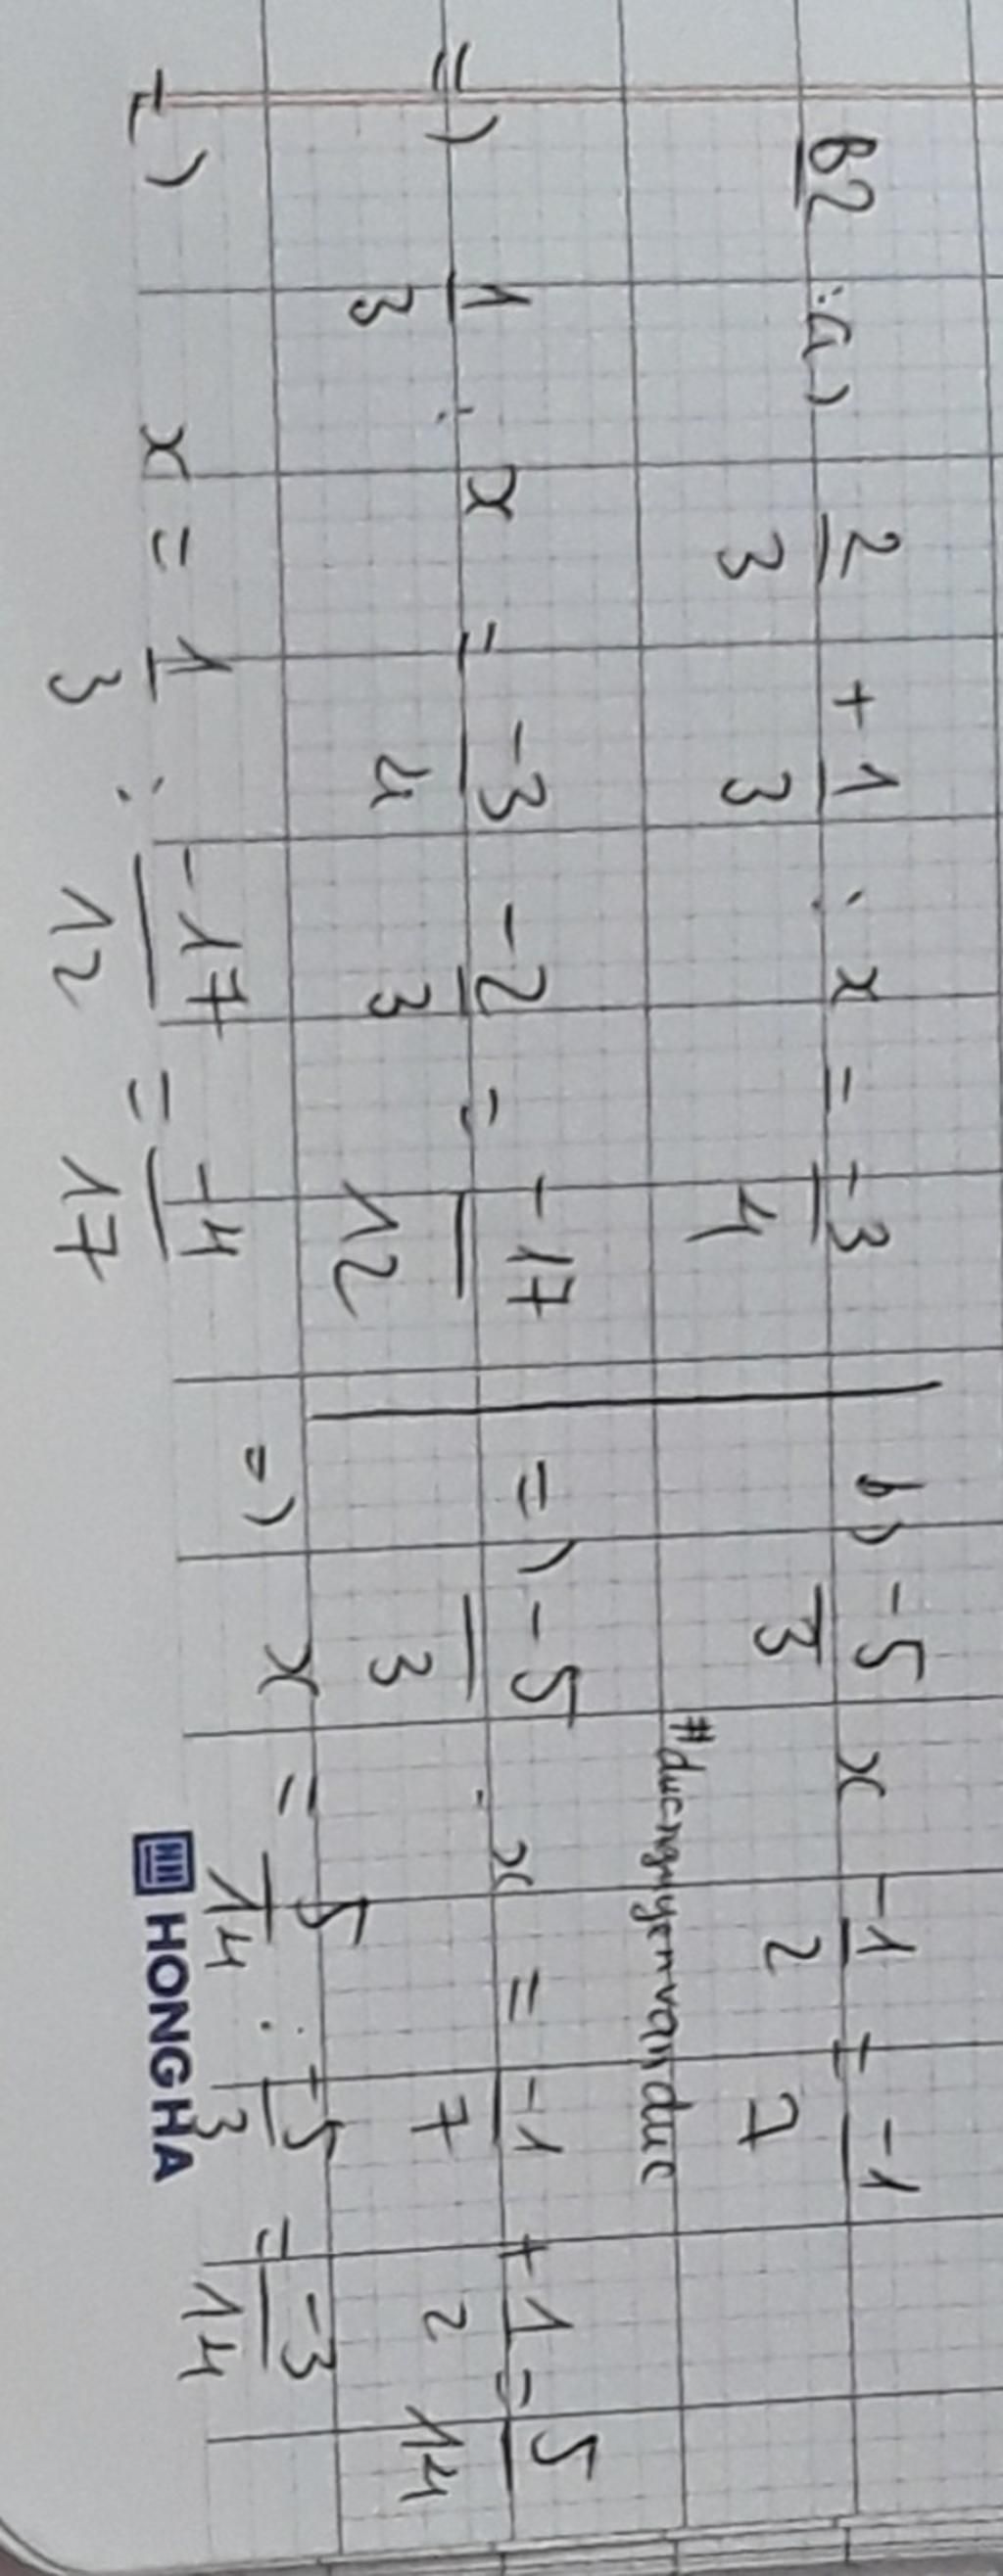 B2 : a) 2/3 + 1/3 : x = -3/4
=) 1/3 : x = -3/4 - 2/3 = -17/12
=) x = 1/3 : -17/12 = -4/17
b) -5/3 x - 1/2 = -1/7
#ducnguyenvanduc
=) -5/3 . x = -1/7 + 1/2 = 5/14
=) x = 5/14 : -5/3 = -3/14
HONG HA